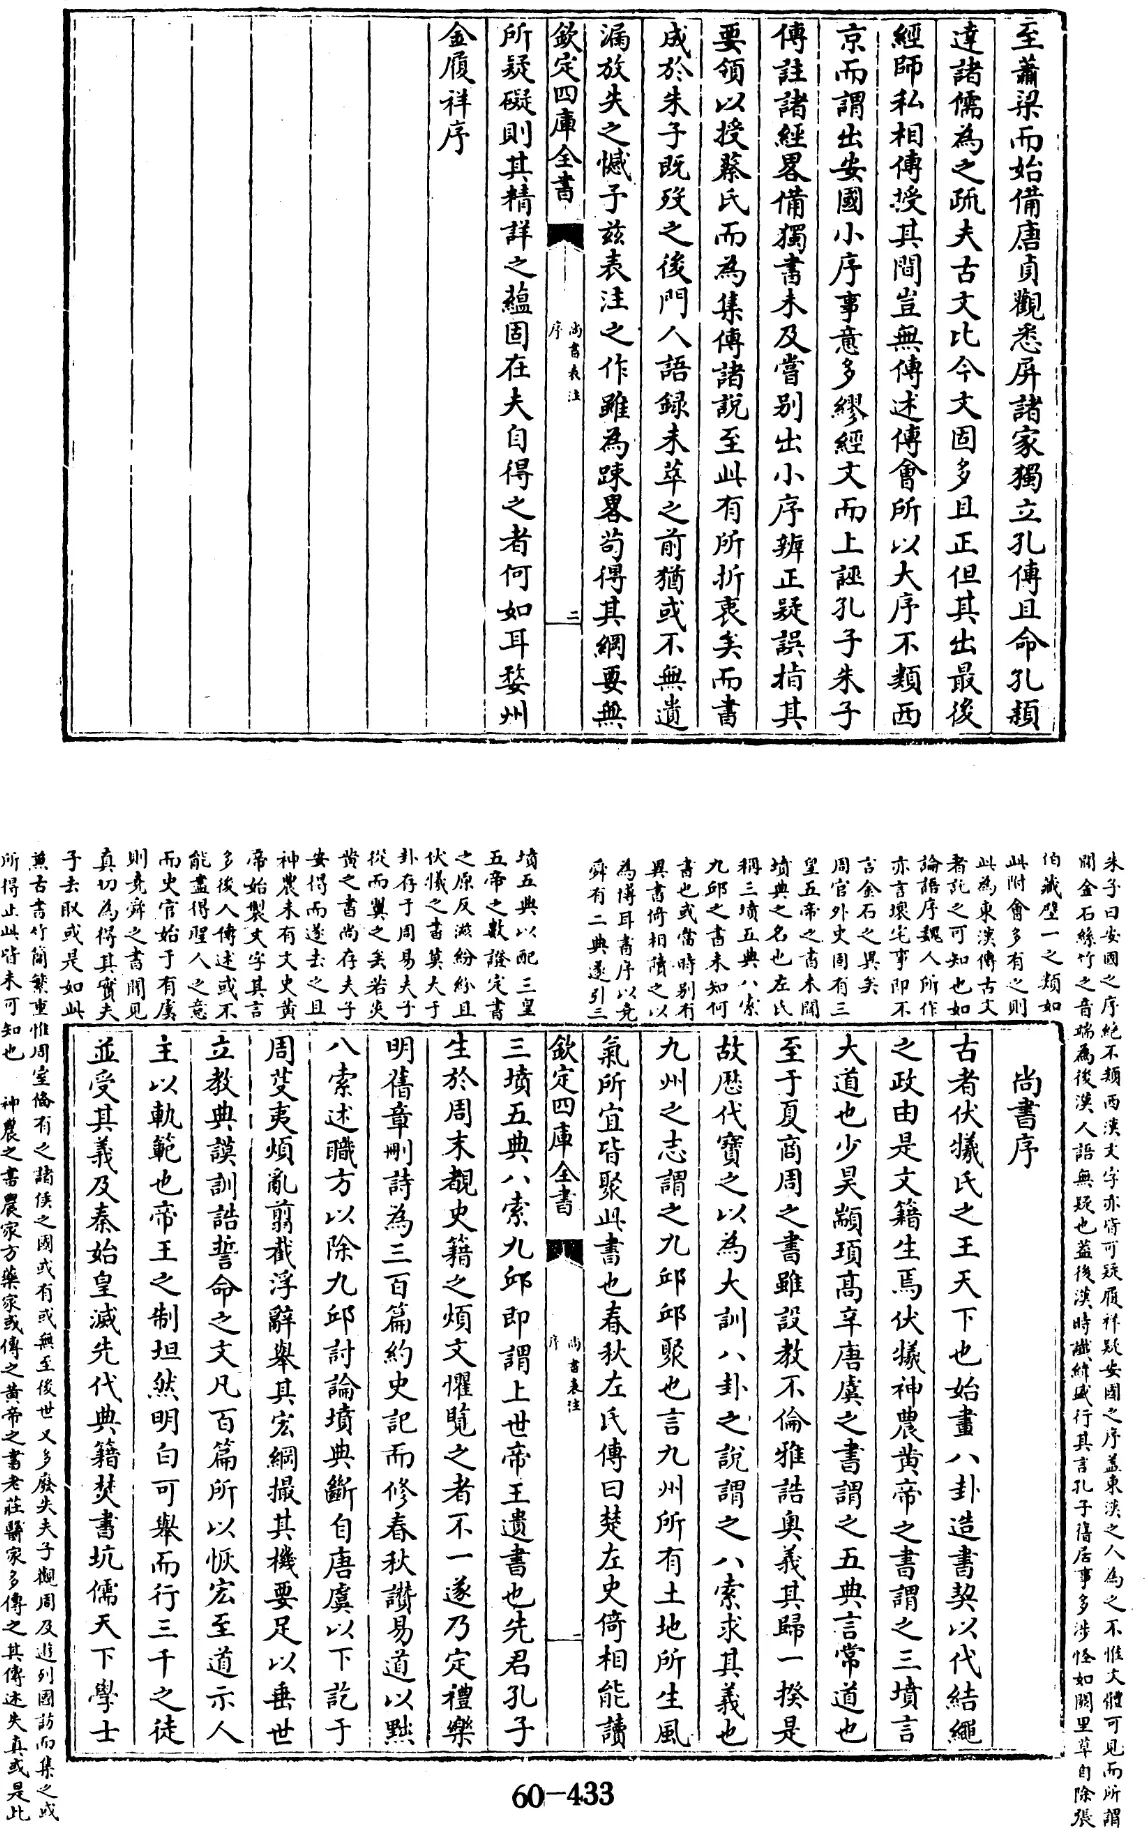 至蕭梁而始備唐貞觀悉屏諸家獨立孔傳且命孔頴
達諸儒為之疏夫古文比今文固多且正但其出最後
經師私相傳授其間豈無傳述傳會所以大序不類西
京而謂出安國小序事意多繆經文而上誣孔子朱子
傳註諸經畧備獨書未及嘗别出小序辨正疑誤指其
要領以授蔡氏而為集傳諸說至此有所折衷矣而書
成於朱子既殁之後門人語録未萃之前猶或不無遺
漏放失之憾予兹表注之作雖為踈畧苟得其綱要無
欽定四庫全書
尚書表注
序
二
所疑礙則其精詳之蘊固在夫自得之者何如耳婺州
金履祥序
朱子曰安國之序絶不類西漢文字亦皆可疑履祥疑安國之序蓋東漢之人為之不惟文體可見而所謂
聞金石絲竹之音端為後漢人語無疑也蓋後漢時讖緯盛行其言孔子舊居事多涉怪如闕里草自除張
伯藏璧一之類如
此附會多有之則
此為東漢傳古文
者託之可知也如
論語序魏人所作
亦言壞宅事即不
言金石之異矣
周官外史固有三
皇五帝之書未聞
墳典之名也左氏
稱三墳五典八索
九邱之書未知何
書也或當時别有
異書倚相讀之以
為博耳書序以堯
舜有二典遂引三
墳五典以配三皇
五帝之數證定書
之原反滋紛紛且
伏犧之書莫大于
卦存于周易夫子
從而翼之矣若炎
黄之書尚存夫子
安得而遂去之且
神農未有文史黄
帝始製文字其言
多後人傳述或不
能盡得聖人之意
而史官始于有虞
則堯舜之書聞見
真切為得其實夫
子去取或是如此
兼古書竹簡繁重惟周室備有之諸侯之國或有或無至後世又多廢失夫子觀周及遊列國訪而集之或
所得止此皆未可知也　神農之書農家方藥家或傳之黄帝之書老莊醫家多傳之其傳述失真或是此
尚書序
古者伏犧氏之王天下也始畫八卦造書契以代結繩
之政由是文籍生焉伏犧神農黄帝之書謂之三墳言
大道也少昊顓頊高辛唐虞之書謂之五典言常道也
至于夏商周之書雖設教不倫雅誥奥義其歸一揆是
故歷代寶之以為大訓八卦之說謂之八索求其義也
九州之志謂之九邱邱聚也言九州所有土地所生風
氣所宜皆聚此書也春秋左氏傳曰楚左史倚相能讀
欽定四庫全書
尚書表注
序
一
三墳五典八索九邱即謂上世帝王遺書也先君孔子
生於周末覩史籍之煩文懼覽之者不一遂乃定禮樂
明舊章刪詩為三百篇約史記而修春秋讚易道以黜
八索述職方以除九邱討論墳典斷自唐虞以下訖于
周芟夷煩亂翦截浮辭舉其宏綱撮其機要足以垂世
立教典謨訓誥誓命之文凡百篇所以恢宏至道示人
主以軌範也帝王之制坦然明白可舉而行三千之徒
並受其義及秦始皇滅先代典籍焚書坑儒天下學士
60-433